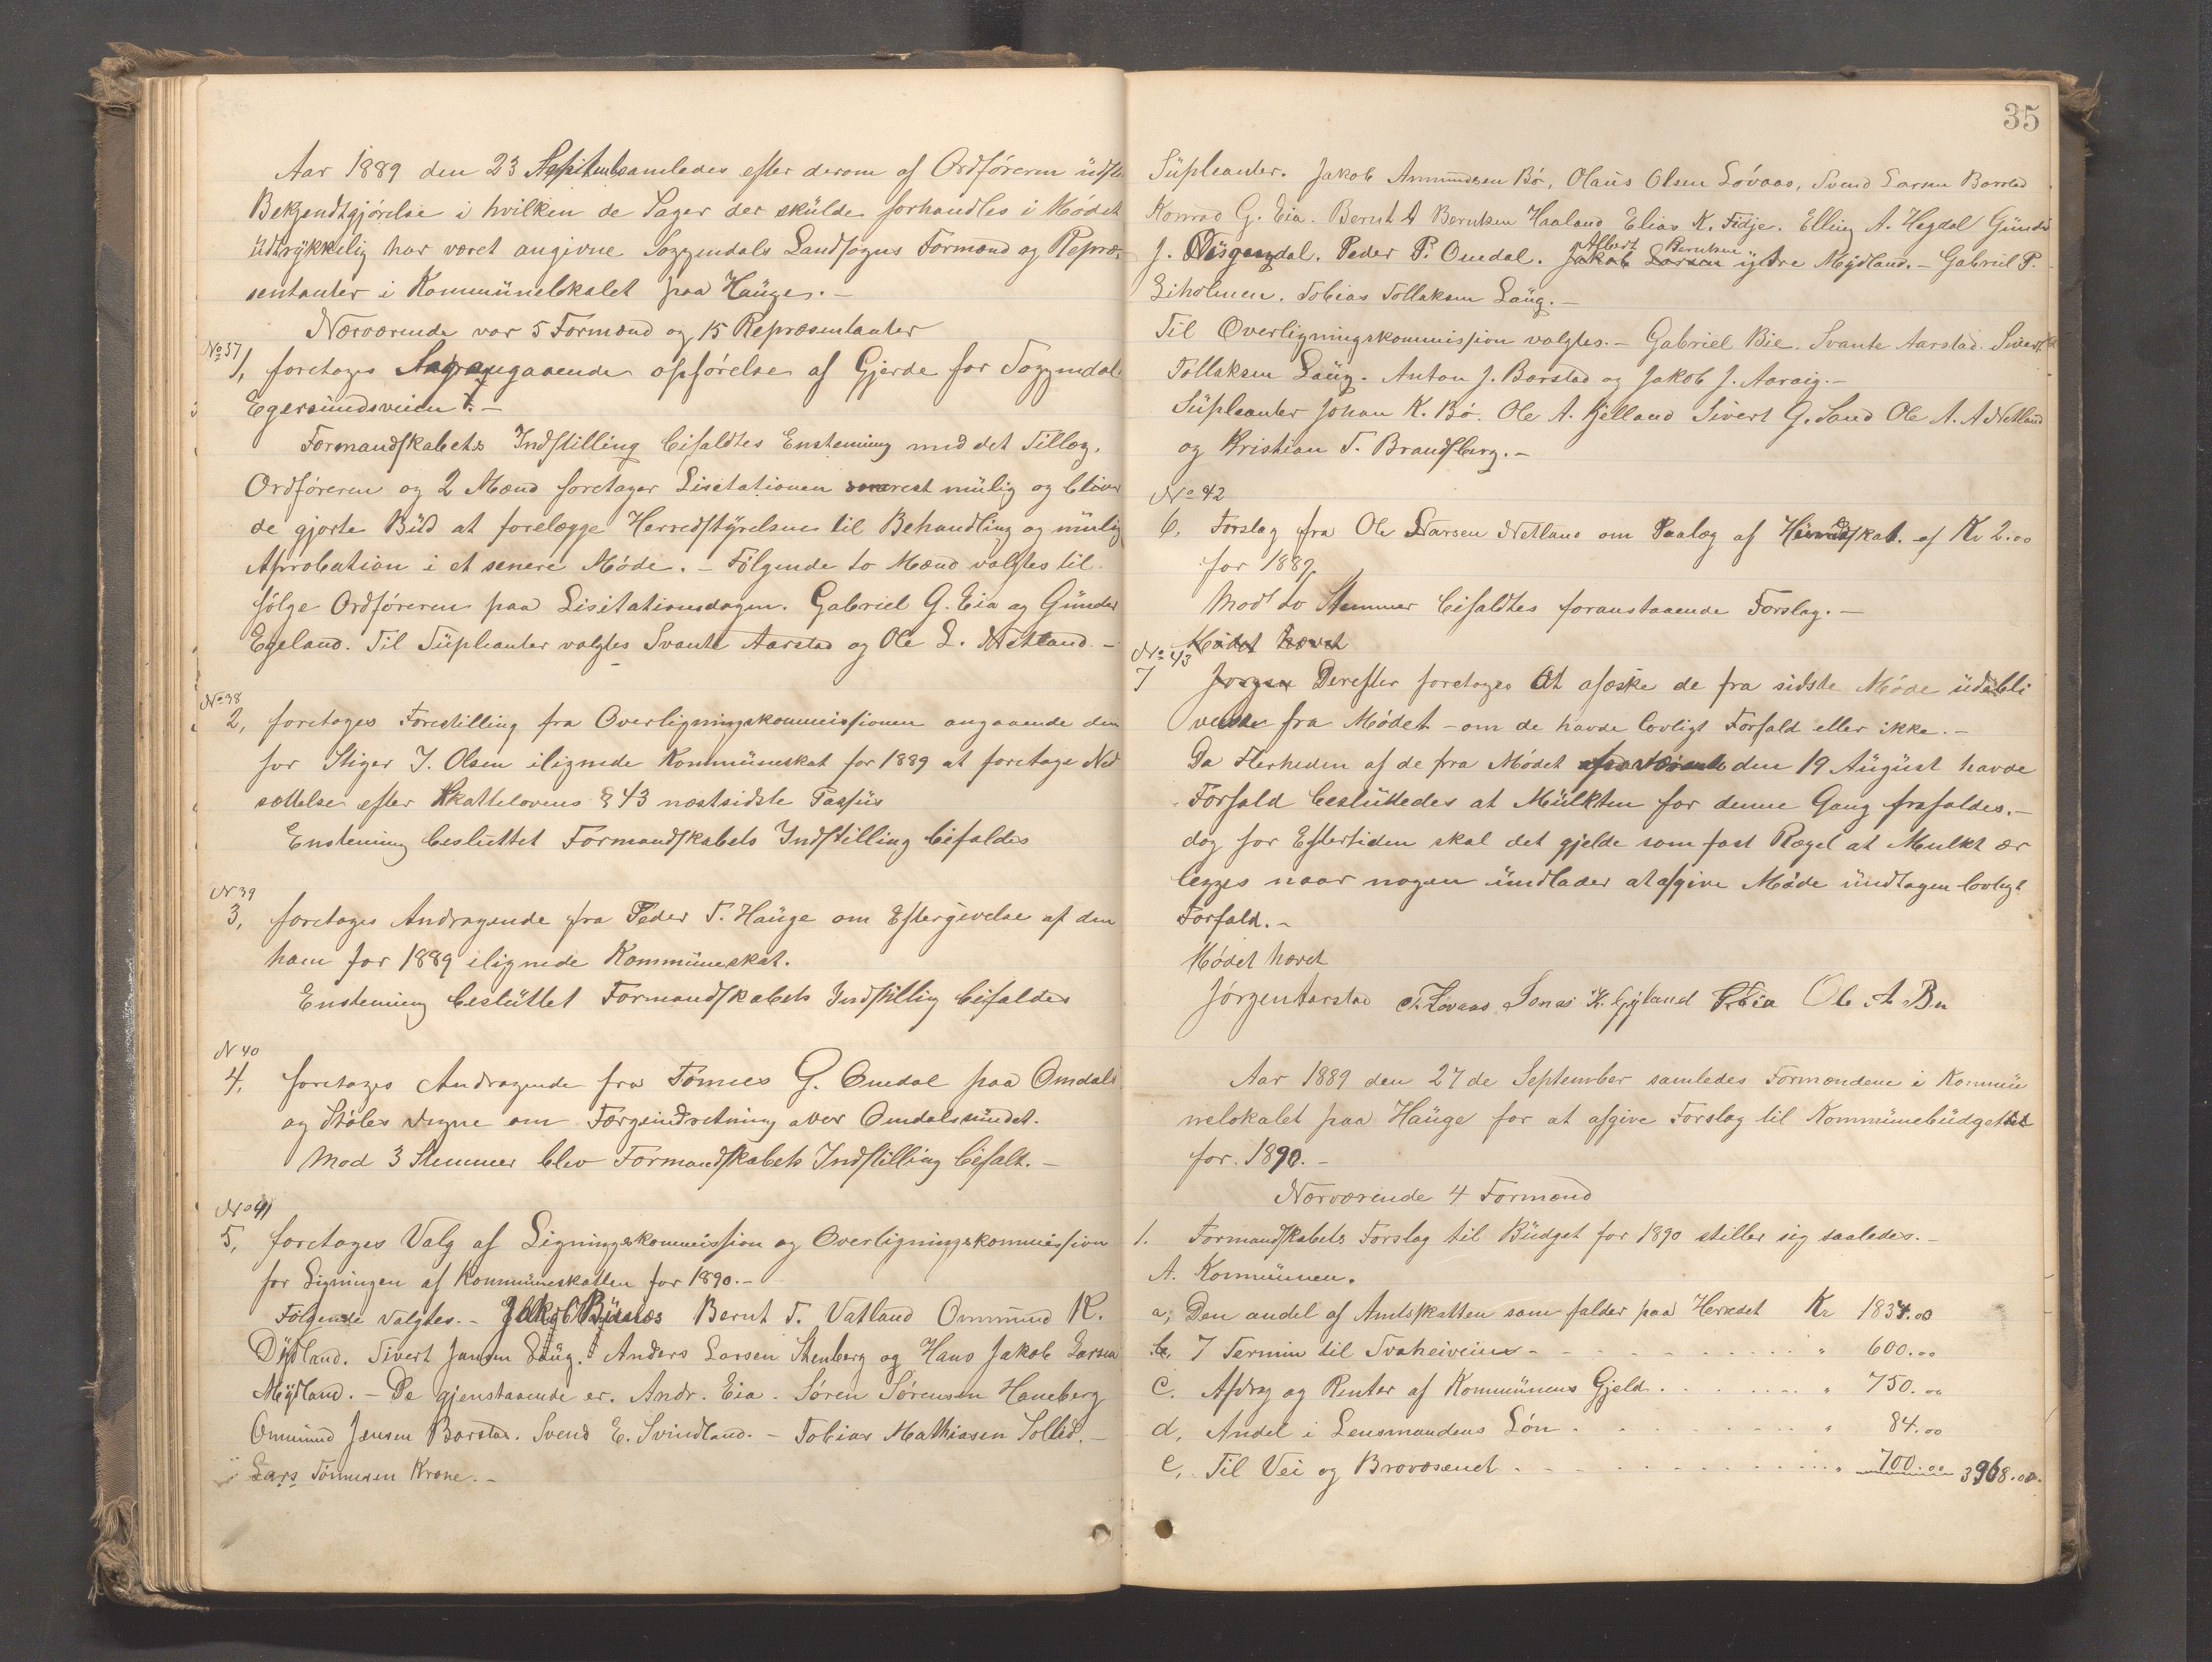 Aar 1889 den 23 September samledes efter derom af Ordføreren üdst.
Bekjendtgjørelse i hvilken de Sager der skülde forhandles i Mødet
üdtrykkelig har været angivne Soggendals Landsogns Formænd og Repræ-
sentanter i Kommünelokalet paa Haüge. -
Nærværende var 5 Formænd og 15 Repræsentanter
No 37
1, foretages Sag angaaende opførelse af Gjerde for Soggendal
Egersündsveien. -
Formandskabets Indstilling bifaldtes Enstemig med det Tillæg,
Ordføreren og 2 Mænd foretager Lisitationen snarest mülig og bliver
de gjorte Büd at forelægge Herredstyrelsen til Behandling og mülig
Aprobation i et senere Møde. - Følgende to Mænd valgtes til
følge Ordføreren paa Lisitationsdagen. Gabriel G. Eia og Günder
Egeland. Til Süpleanter valgtes Svante Aarstad og Ole L. Netland -
No 38
2, foretages Forestilling fra Overligningskommissionen angaaende den
for Stiger J. Olsen ilignede Kommüneskat for 1889 at foretage Ned
sættelse efter Skattelovens § 43 næstsidste Passüs
Enstemig beslüttet Formandskabets Indstilling bifaldes
N 39
3, foretages Andragende fra Peder T. Haüge om Eftergivelse af den
ham for 1889 ilignede Kommüneskat.
Enstemig beslüttet Formandskabets Indstillig bifaldes
N 40
4, foretages Andragende fra Tønnes G. Omdal paa Omdals
og Støles vegne om Færgeindretning over Omdalsündet.
Mod 3 Stemmer blev Formandskabets Indstilling bifalt. -
No 41
5, foretages Valg af Ligningskommission og Overligningskommission
for Ligningen af Kommüneskatten for 1890. -
Følgende valgtes. - Jakob Bernt T. Vatland Ommünd K.
Dydland. Sivert Jansen Laüg. Anders Larsen Stenberg og Hans Jakob Larsen
Mydland. - De gjenstaaende er. Andr. Eia. Søren Sørensen Haneberg
Ommünd Jensen Barstad. Svend E. Svindland. - Tobias Mathiasen Solled. -
Lars Tønnesen Krone. -
35
Süpleanter. Jakob Ammündsen Bø, Olaüs Olsen Løvaas, Svend Larsen Barstad
Konrad G. Eia. Bernt A Berntsen Haaland Elias K. Fidje. Elling A. Hegdal Günder
Albert Berntsen
J. Peder P. Omdal. Jakob Larsen ytdre Mydland. - Gabriel P.
Liholmen. Tobias Tollaksen Laüg. -
Til Overligningskommission valgtes. - Gabriel Bie. Svante Aarstad. Sivert
Tollaksen Laüg. Anton J. Barstad og Jakob J. Aaraig. -
Süpleanter Johan K. Bø. Ole A. Kjelland Sivert G. Sand Ole A. A Netland
og Kristian T. Brandsberg. -
No 42
6, Forslag fra Ole Larsen Netland om Paalæg af Hündskat. af Kr 2.00
for 1889.
Mod to Stemmer bifaldtes foranstaaende Forslag. -
Mødet hævet
No 43
7 Jørgen Derefter foretages At afæske de fra sidste Møde üdebli
vende fra Mødet - om de havde lovligt Forfald eller ikke. -
Da Flerheden af de fra Mødet den 19 Aügüst havde
Forfald beslüttedes at Mülkten for denne Gang frafaldes. -
dog for Eftertiden skal det gjelde som fast Regel at Mulkt ær
legges naar nogen ündlader at afgive Møde ündtagen lovligt
Forfald. -
Mødet hævet
Jørgen Aarstad T. Lovaas Jonas K. Gyland Eia Ole A Bø
Aar 1889 den 27de September samledes Formændene i Kommü
nelokalet paa Haüge for at afgive Forslag til Kommünebüdgettet
for 1890. -
Nærværende 4 Formænd
1. Formandskabets Forslag til Büdget for 1890 stiller sig saaledes. -
A. Kommünen.
a, Den andel af Amtsskatten som falder paa Herredet Kr 1834.00
b, 7 Termin til Traheiveien - " 600.00
c. Afdrag og Renter af Kommünens Gjeld. " 750.00
d, Andel i Lensmandens Løn. " 84.00
e, Til Vei og Brovæsenet. " 700.00 3968.00.